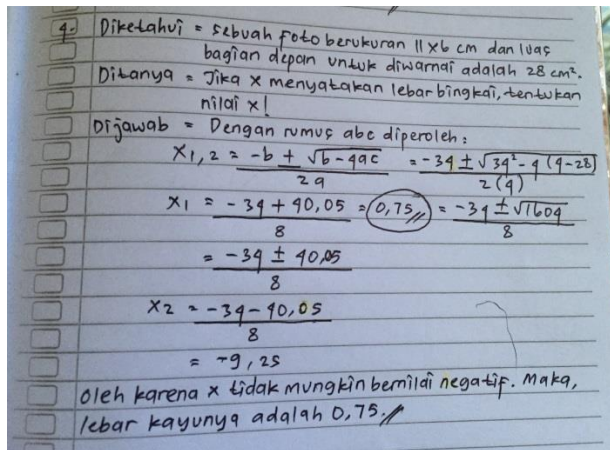 4. Diketahui = sebuah foto berukuran 11 x 6 cm dan luas
bagian depan untuk diwarnai adalah 28 cm².
Ditanya = Jika x menyatakan lebar bingkai, tentukan
nilai x!
Dijawab = Dengan rumus abc diperoleh:
X1,2 = -b ± √b-4ac / 2a = -34 ± √34²-4(4-28) / 2(4)
X1 = -34 + 40,05 / 8 = 0,75 // = -34 ± √1604 / 8
= -34 ± 40,05 / 8
X2 = -34 - 40,05 / 8
= -9,25
Oleh karena x tidak mungkin bernilai negatif. Maka,
lebar kayunya adalah 0,75. //